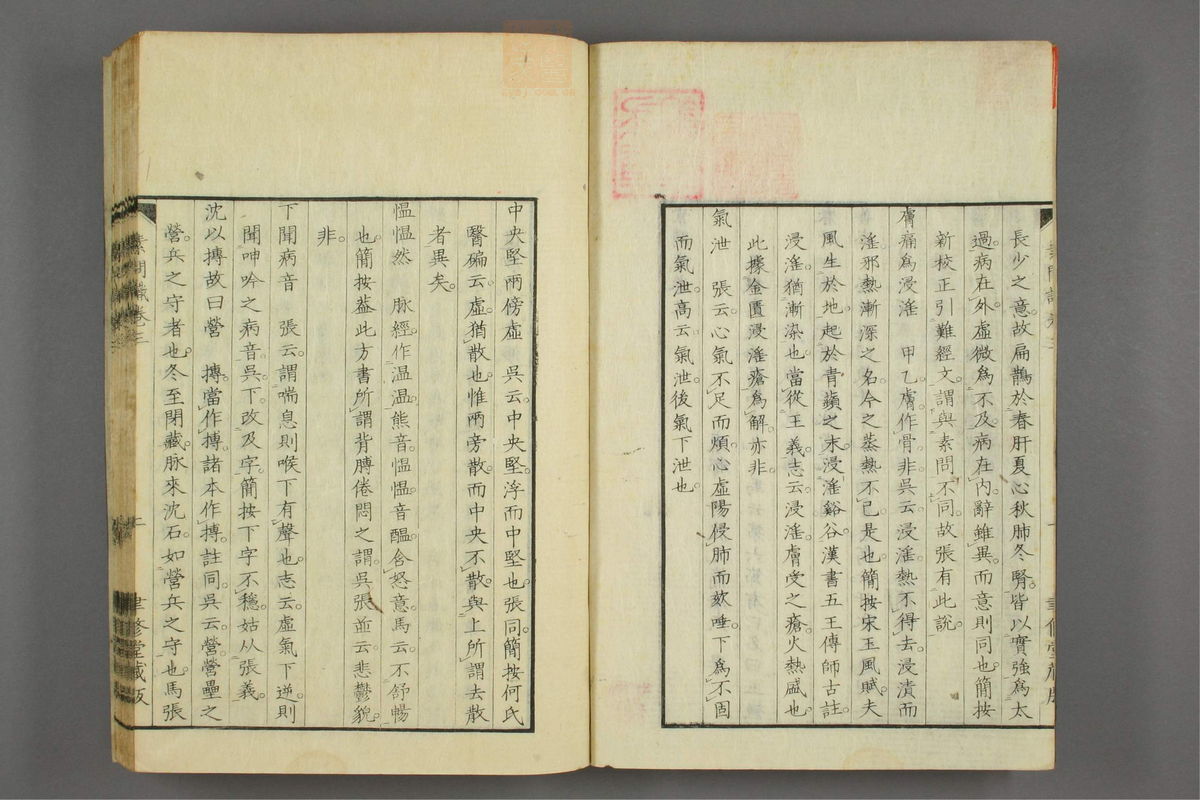 長少之意。故扁鵲於春肝夏心秋肺冬腎。皆以實強爲太
過。病在外。虛微爲不及。病在内。辭雖異。而意則同也。簡按
新校正引難經文。謂與素問不同。故張有此說。
膚痛爲浸淫　甲乙。膚作骨。非。吳云。浸淫。熱不得去。浸漬而
淫。邪熱漸深之名。今之蒸熱不已。是也。簡按宋玉風賦。夫
風生於地。起於青蘋之末。浸淫谿谷。漢書五王傳師古註。
浸淫。猶漸染也。當從王義。志云。浸淫。膚受之瘡。火熱盛也。
此據金匱浸淫瘡爲解。亦非。
氣泄　張云。心氣不足而煩。心虛陽侵肺而欬唾。下爲不固
而氣泄。高云。氣泄。後氣下泄也。
中央堅兩傍虛　吳云。中央堅。浮而中堅也。張同。簡按何氏
醫碥云。虛。猶散也。惟兩旁散。而中央不散。與上所謂去散
者異矣。
慍慍然　脉經。作温温。熊音。慍慍。音醞。含怒意。馬云。不舒暢
也。簡按蓋此方書所謂背膊倦悶之謂。吳張並云。悲鬱貌。
非。
下聞病音　張云。謂喘息則喉下有聲也。志云。虛氣下逆。則
聞呻吟之病音。吳下。改及字。簡按下字不穩。姑从張義。
沈以搏故曰營　搏。當作摶。諸本作搏。註同。吳云。營。營壘之
營。兵之守者也。冬至閉藏。脉來沈石。如營兵之守也。馬張
素問識卷三
二
聿修堂藏版